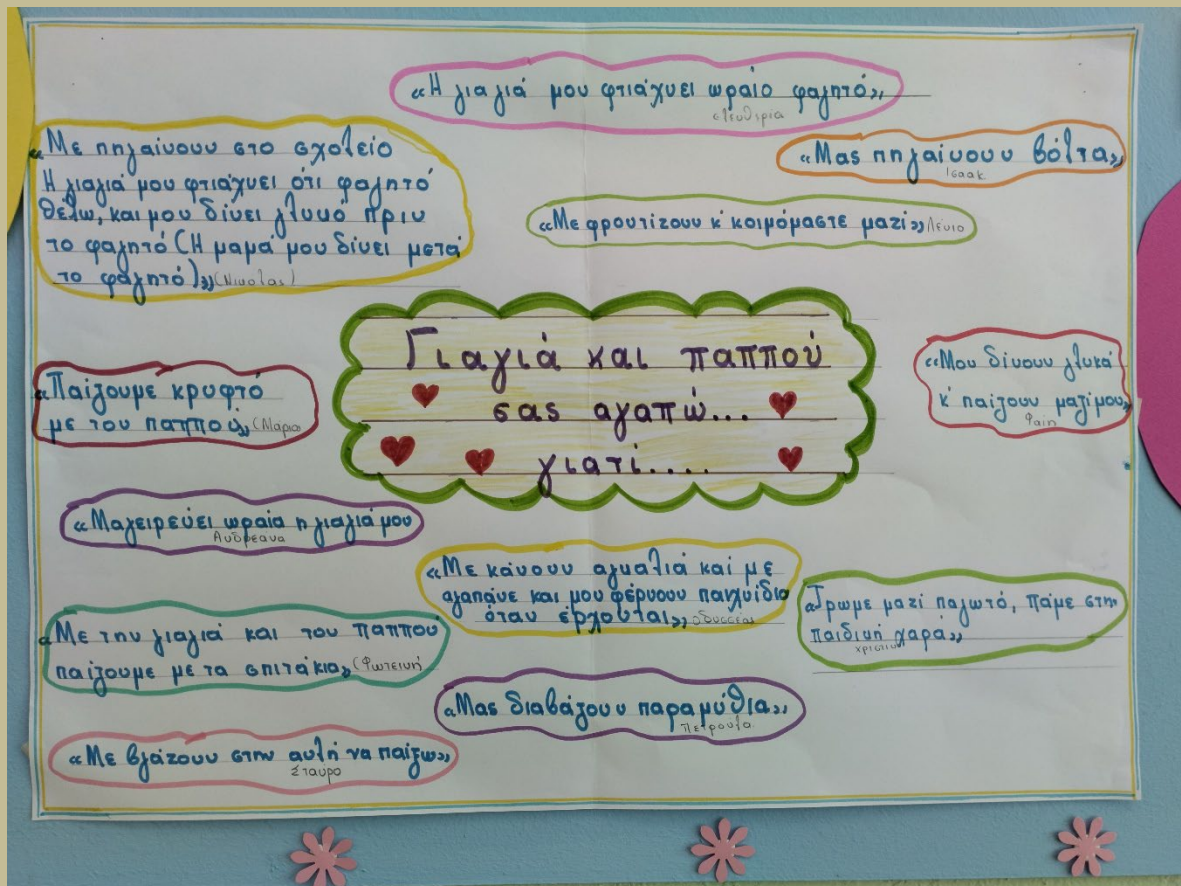 «Η γιαγιά μου φτιάχνει ωραίο φαγητό»
ελευθερία
«Με πηγαίνουν στο σχολείο
Η γιαγιά μου φτιάχνει ότι φαγητό
θέλω, και μου δίνει γλυκό πριν
το φαγητό (Η μαμά μου δίνει μετά
το φαγητό)» (Νικόλας)
«Μας πηγαίνουν βόλτα»
Ισαακ
«Με φροντίζουν κ' κοιμόμαστε μαζί» Λένιο
Γιαγιά και παππού
σας αγαπώ...
γιατί....
«Μου δίνουν γλυκά
κ' παίζουν μαζί μου»
Φαίη
«Παίζουμε κρυφτό
με τον παππού» (Μάριο
«Μαγειρεύει ωραία η γιαγιά μου
Ανδρεανα
«Με κάνουν αγκαλιά και με
αγαπάνε και μου φέρνουν παιχνίδια
όταν έρχονται» Οδυσσέας
«Τρώμε μαζί παγωτό, πάμε στην
παιδική χαρά»
χριστίνα
«Με την γιαγιά και τον παππού
παίζουμε με τα σπιτάκια» (Φωτεινή
«Μας διαβάζουν παραμύθια»
Πετρούλα
«Με βγάζουν στην αυλή να παίξω»
Σταύρο